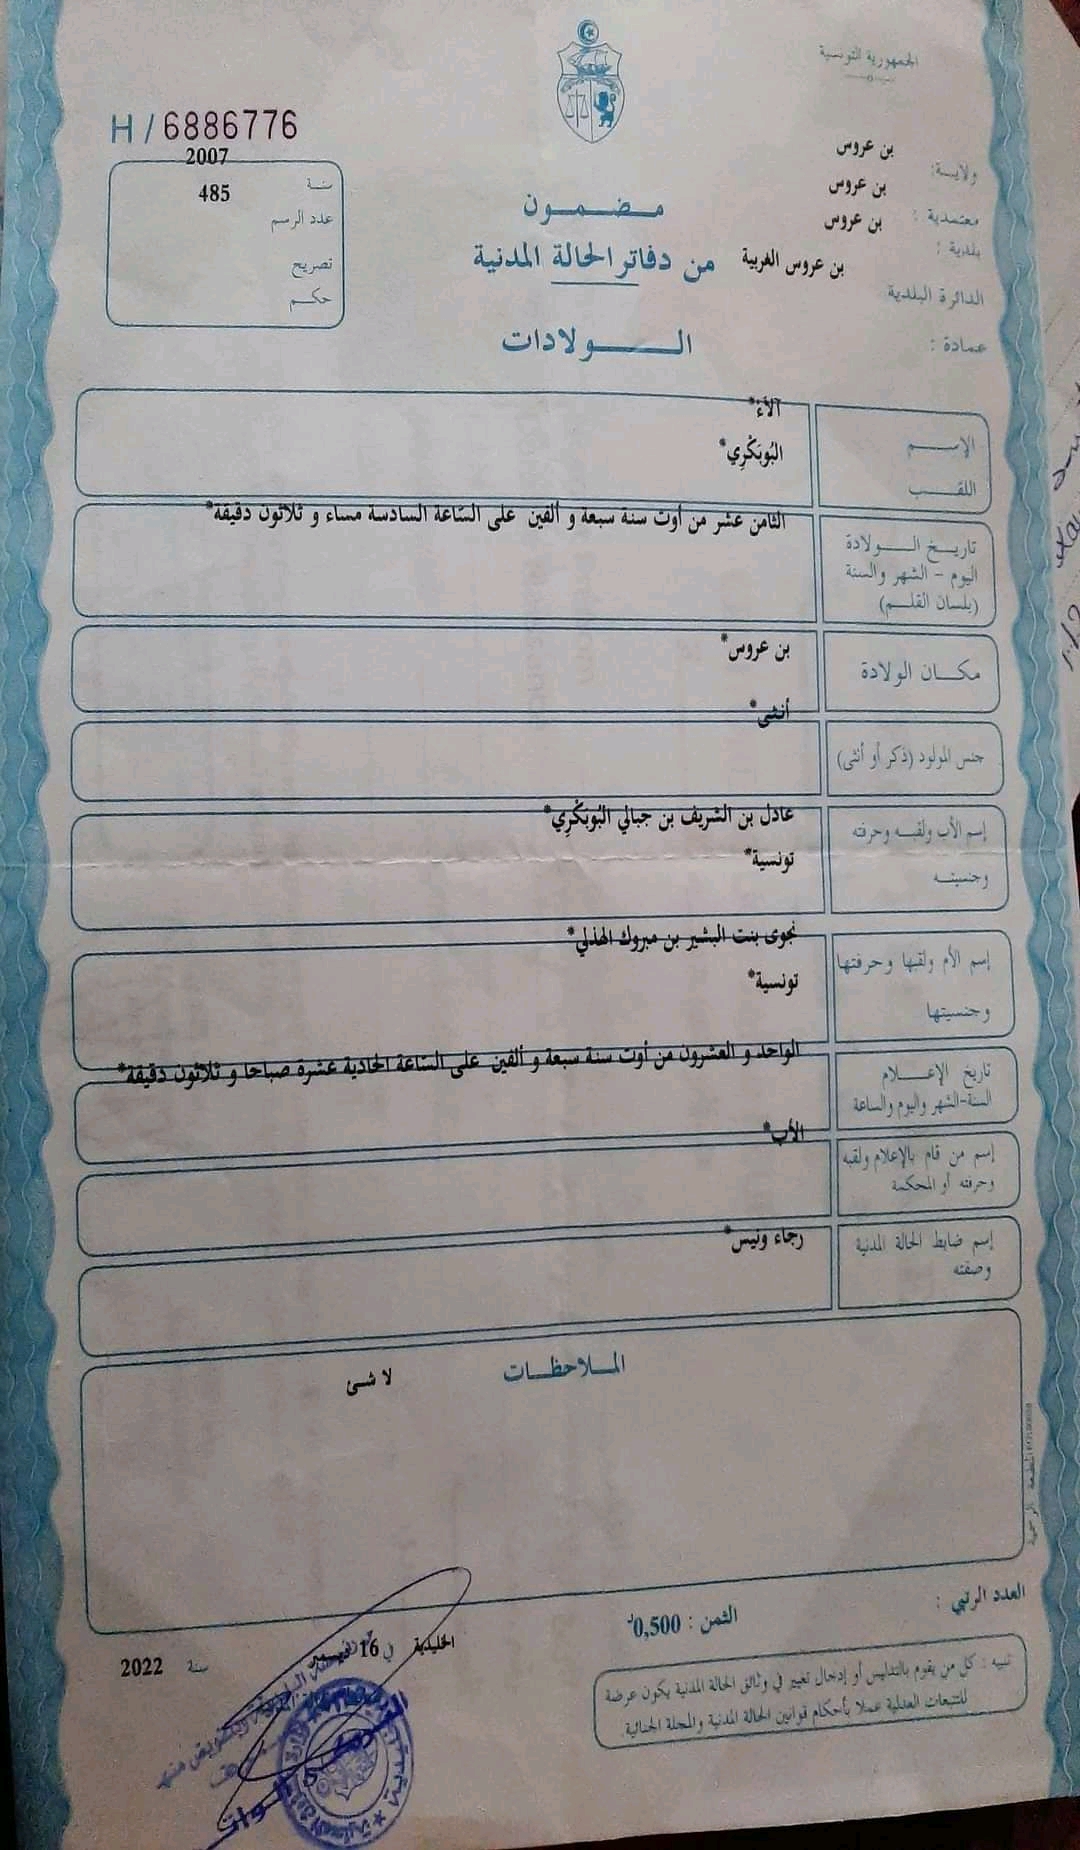 الجمهورية التونسية
H / 6886776
ولاية: بن عروس
معتمدية : بن عروس
بلدية : بن عروس
الدائرة البلدية بن عروس الغربية
عمادة :
سنة 2007
عدد الرسم 485
تصريح
حكم
مضمون
من دفاتر الحالة المدنية
الولادات
الإسم آلاء*
اللقب البُوبَكْرِي*
تاريخ الولادة
اليوم - الشهر والسنة
(بلسان القلم)
الثامن عشر من أوت سنة سبعة و ألفين على السّاعة السادسة مساء و ثلاثون دقيقة*
مكان الولادة بن عروس*
جنس المولود (ذكر أو أنثى) أنثى*
إسم الأب ولقبه وحرفته
وجنسيته
عادل بن الشريف بن جبالي البُوبَكْرِي*
تونسية*
إسم الأم ولقبها وحرفتها
وجنسيتها
نجوى بنت البشير بن مبروك الهذلي*
تونسية*
تاريخ الإعلام
السنة-الشهر واليوم والساعة
الواحد و العشرون من أوت سنة سبعة و ألفين على السّاعة الحادية عشرة صباحا و ثلاثون دقيقة*
إسم من قام بالإعلام ولقبه
وحرفته أو المحكمة
الأب*
إسم ضابط الحالة المدنية
وصفته
رجاء ونيس*
الملاحظات
لا شئ
العدد الرتبي :
الثمن : 0,500د
الخليدية في 16 ديسمبر سنة 2022
تنبيه : كل من يقوم بالتدليس أو إدخال تغيير في وثائق الحالة المدنية يكون عرضة
للتتبعات العدلية عملا بأحكام قوانين الحالة المدنية والمجلة الجنائية.